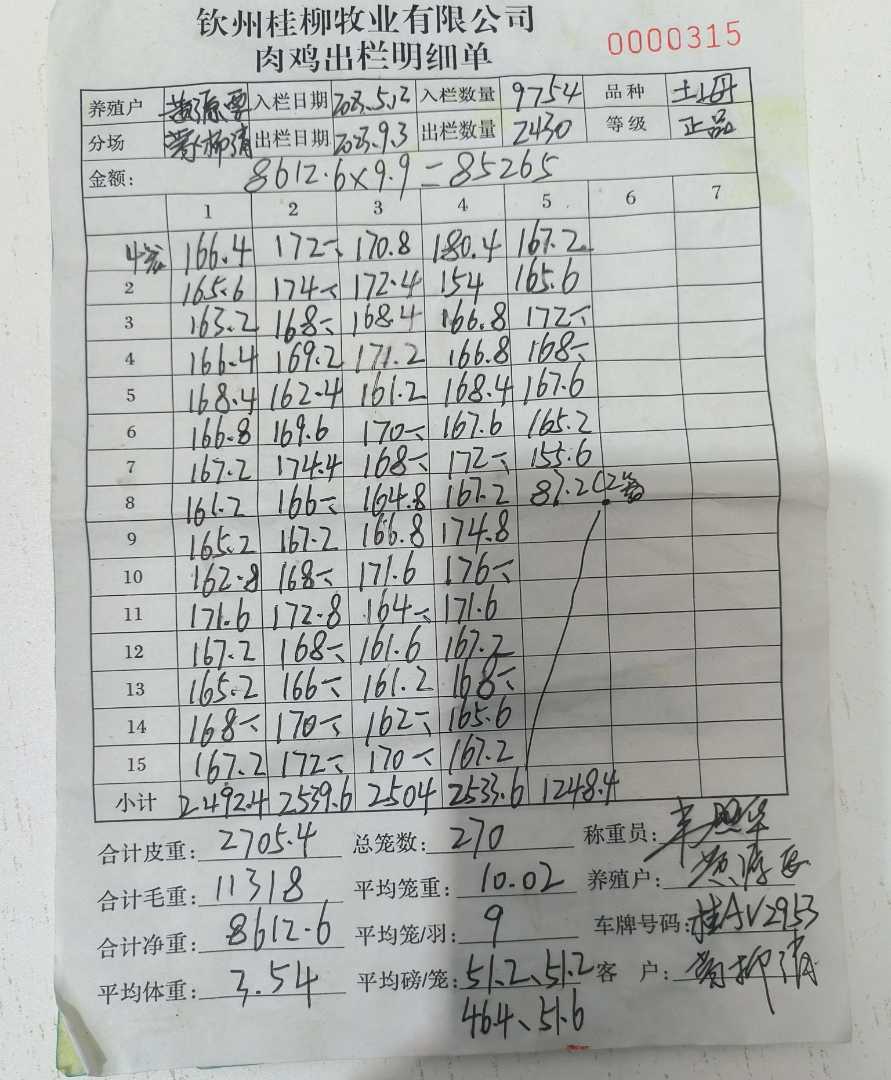 钦州桂柳牧业有限公司
肉鸡出栏明细单 0000315
养殖户 入栏日期 2023.5.2 入栏数量 9754 品种 土母
分场 出栏日期 2023.9.3 出栏数量 2430 等级 正品
金额: 8612.6×9.9=85265
1 2 3 4 5 6 7
4笼 166.4 172 170.8 180.4 167.2
2 165.6 174 172.4 154 165.6
3 163.2 168 168.4 166.8 172
4 166.4 169.2 171.2 166.8 168
5 168.4 162.4 161.2 168.4 167.6
6 166.8 169.6 170 167.6 165.2
7 167.2 174.4 168 172 155.6
8 161.2 166 164.8 167.2 87.2(2笼)
9 165.2 167.2 166.8 174.8
10 162.8 168 171.6 176
11 171.6 172.8 164 171.6
12 167.2 168 161.6 167.2
13 165.2 166 161.2 168
14 168 170 162 165.6
15 167.2 172 170 167.2
小计 2492.4 2539.6 2504 2533.6 1248.4
合计皮重: 2705.4 总笼数: 270 称重员:
合计毛重: 11318 平均笼重: 10.02 养殖户:
合计净重: 8612.6 平均笼/羽: 9 车牌号码: 桂AV2953
平均体重: 3.54 平均磅/笼: 51.2、51.2 客 户:
46.4、51.6